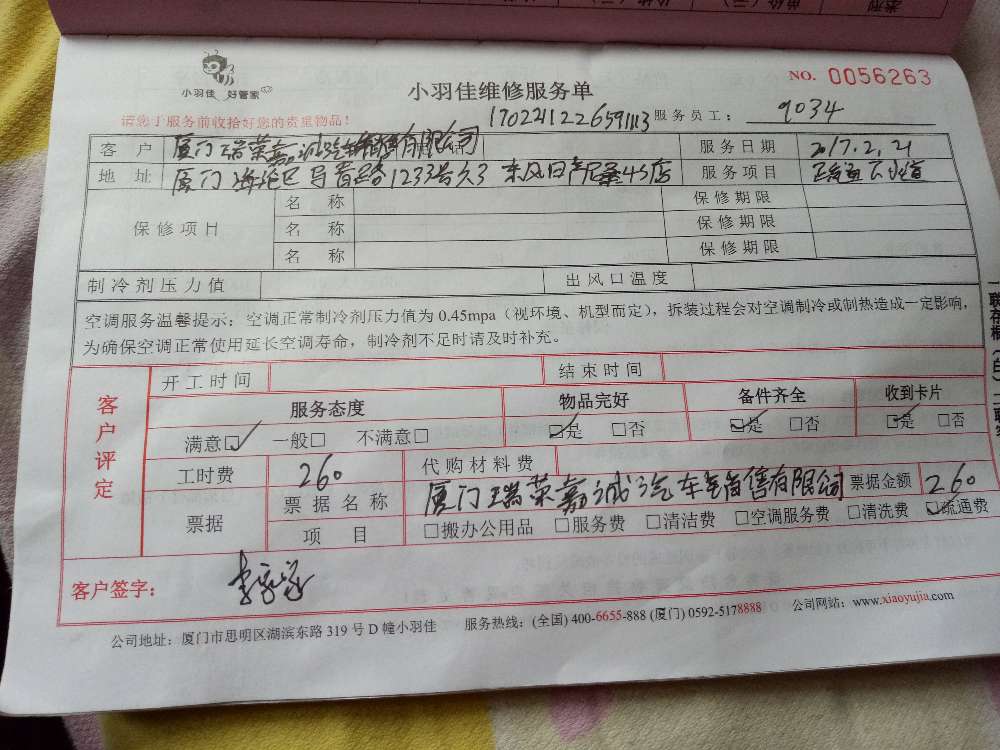 小羽佳 好管家
小羽佳维修服务单
NO. 0056263
请您于服务前收拾好您的贵重物品！
17022112265 9113
服务员工： 9034
客 户 厦门瑞荣嘉诚汽车销售有限公司 服务日期 2017.2.21
地 址 厦门海沧区 1233号 东风日产 4S店 服务项目 疏通下水道
保修项目 名 称 保修期限
名 称 保修期限
名 称 保修期限
制冷剂压力值 出风口温度
空调服务温馨提示：空调正常制冷剂压力值为 0.45mpa（视环境、机型而定），拆装过程会对空调制冷或制热造成一定影响，
为确保空调正常使用延长空调寿命，制冷剂不足时请及时补充。
客户评定
开工时间 结束时间
服务态度 物品完好 备件齐全 收到卡片
满意☑ 一般□ 不满意□ ☑是 □否 ☑是 □否 ☑是 □否
工时费 260 代购材料费
票据 票据名称 厦门瑞荣嘉诚汽车销售有限公司 票据金额 260
项 目 □搬办公用品 □服务费 □清洁费 □空调服务费 □清洗费 ☑疏通费
客户签字：
公司地址：厦门市思明区湖滨东路 319 号 D 幢小羽佳 服务热线：(全国) 400-6655-888 (厦门) 0592-5178888 公司网站：www.xiaoyujia.com